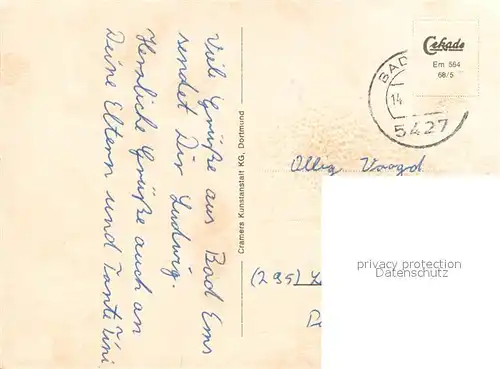 Viele Grüße aus Bad Ems
sendet Dir Ludwig.
Herzliche Grüße auch an
Deine Eltern und Tante Tini.
Cramers Kunstanstalt KG, Dortmund
Cekade
Em 564
68/5
BAD
14
5427
Voogd
(295)
privacy protection
Datenschutz